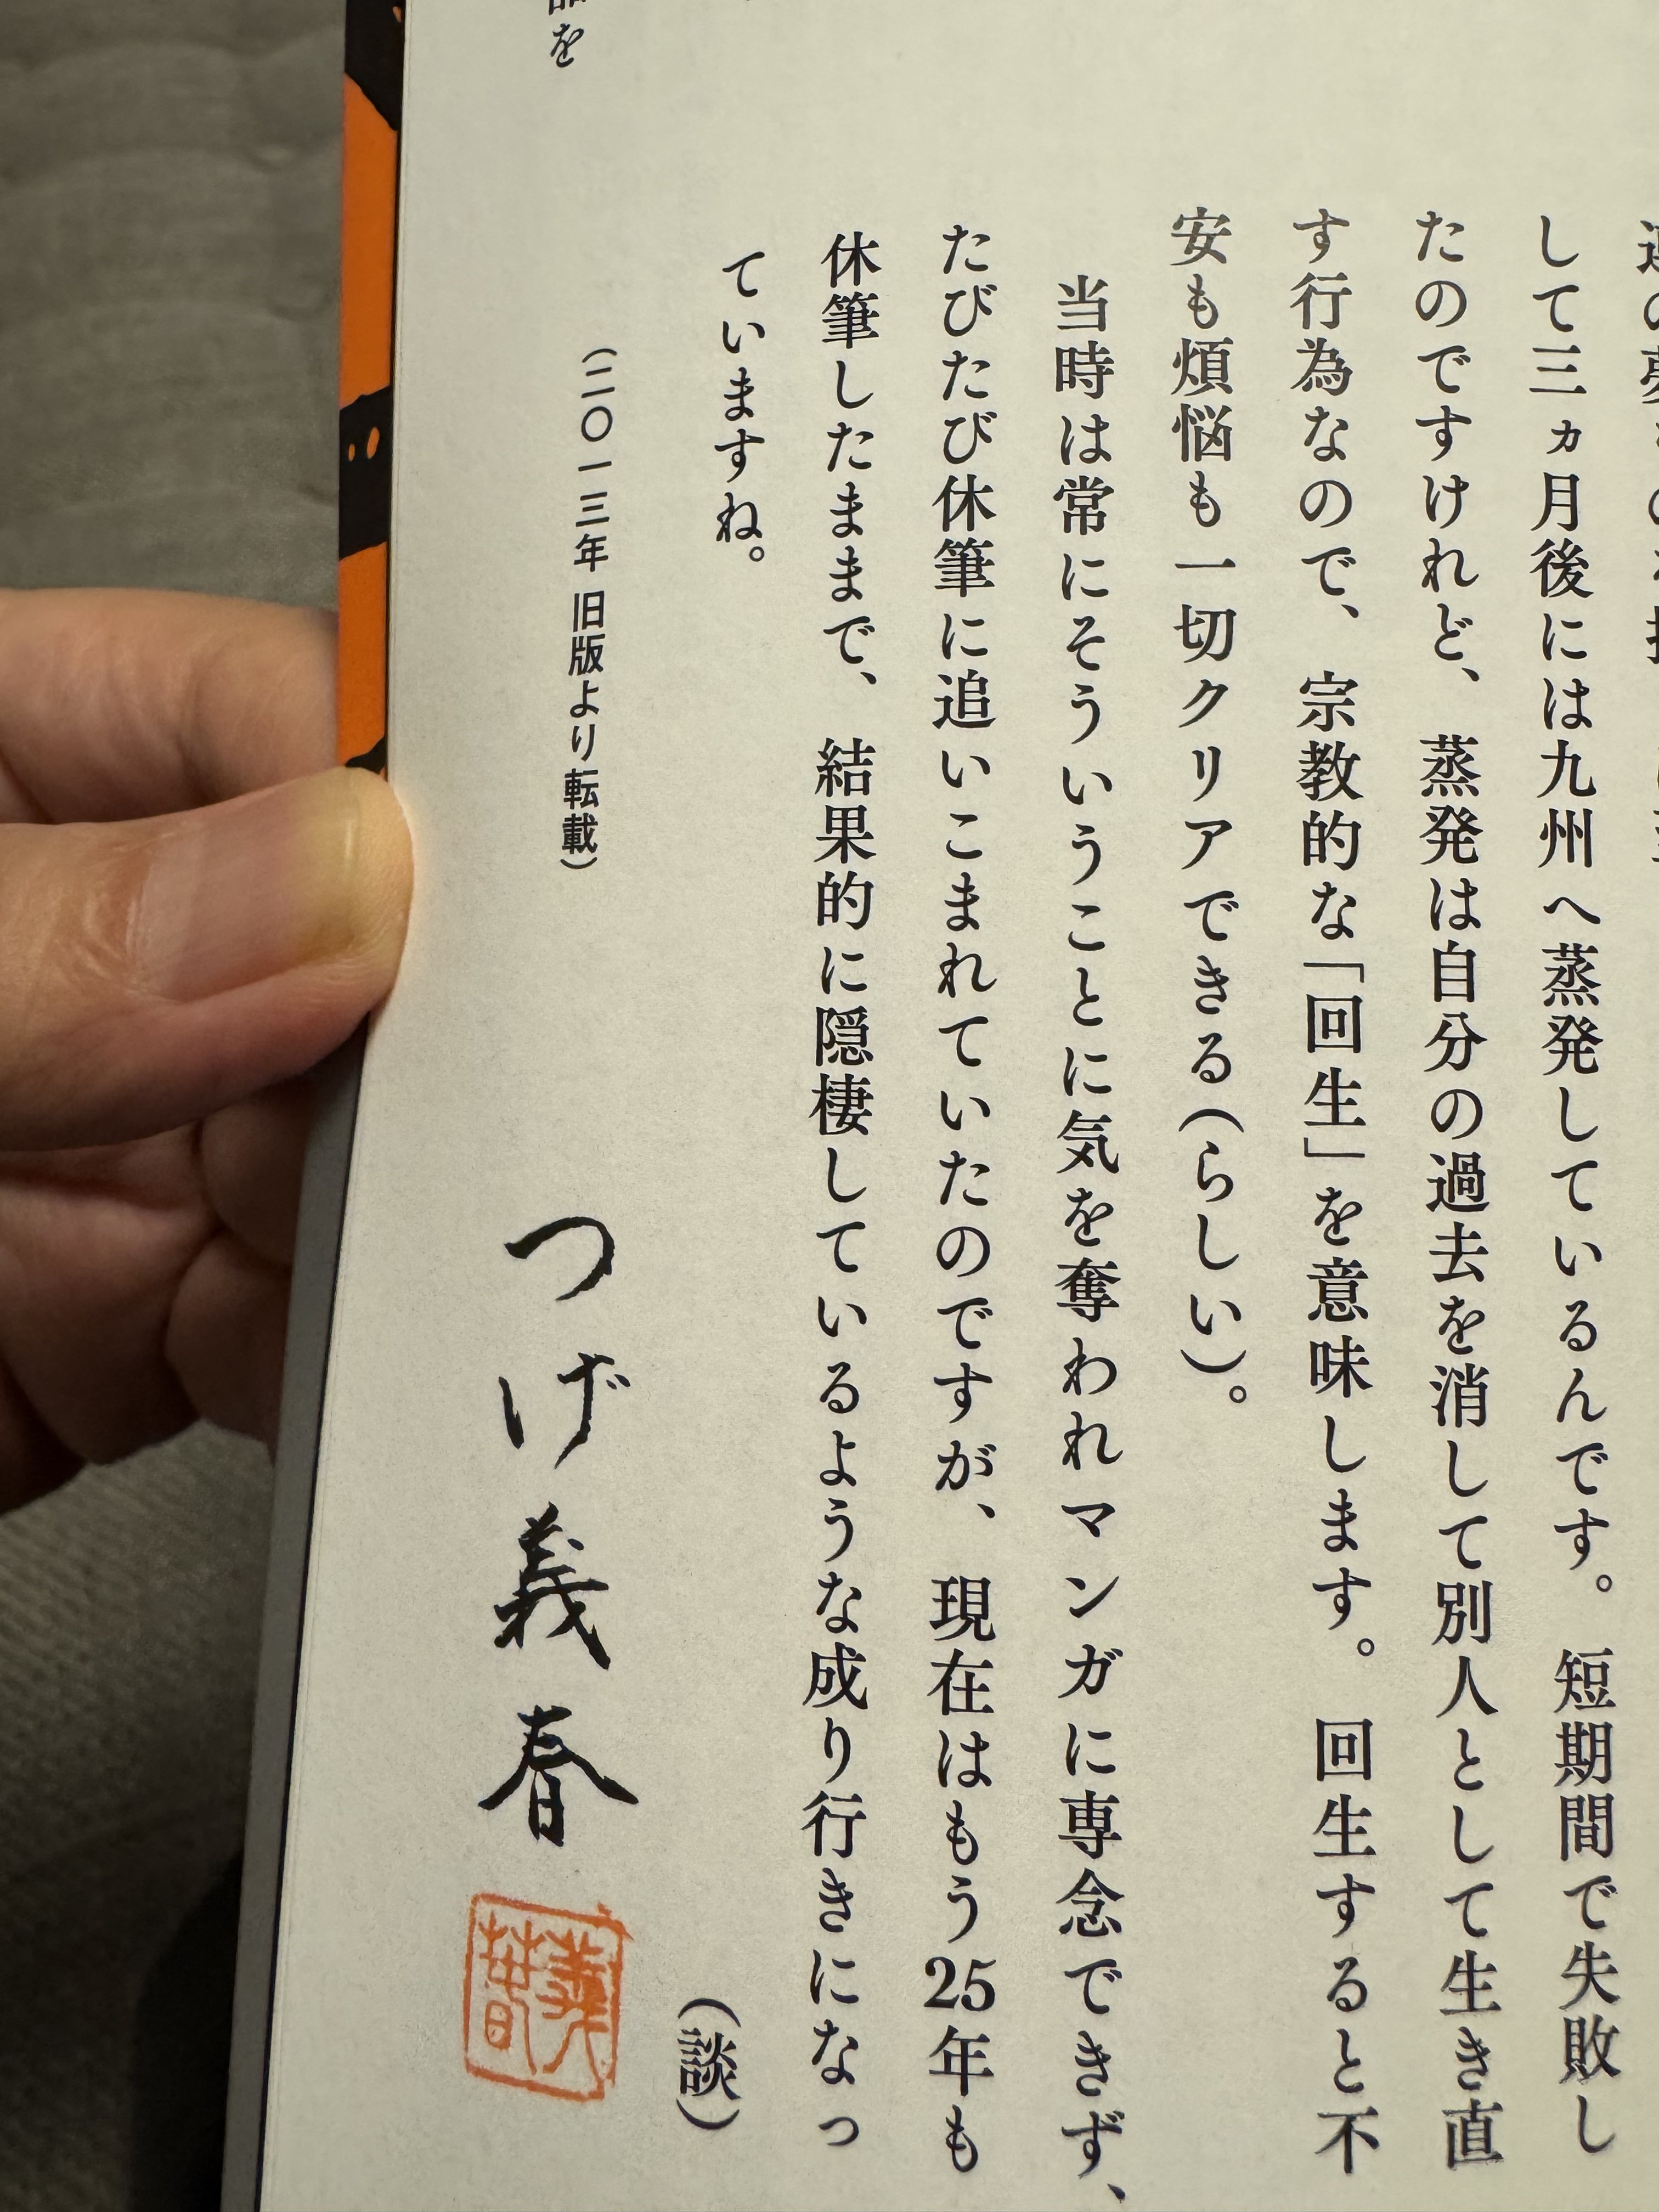 して三ヵ月後には九州へ蒸発しているんです。短期間で失敗し
たのですけれど、蒸発は自分の過去を消して別人として生き直
す行為なので、宗教的な「回生」を意味します。回生すると不
安も煩悩も一切クリアできる(らしい)。
当時は常にそういうことに気を奪われマンガに専念できず、
たびたび休筆に追いこまれていたのですが、現在はもう25年も
休筆したままで、結果的に隠棲しているような成り行きになっ
ていますね。
(談)
(二〇一三年 旧版より転載)
つげ義春
義春
品を